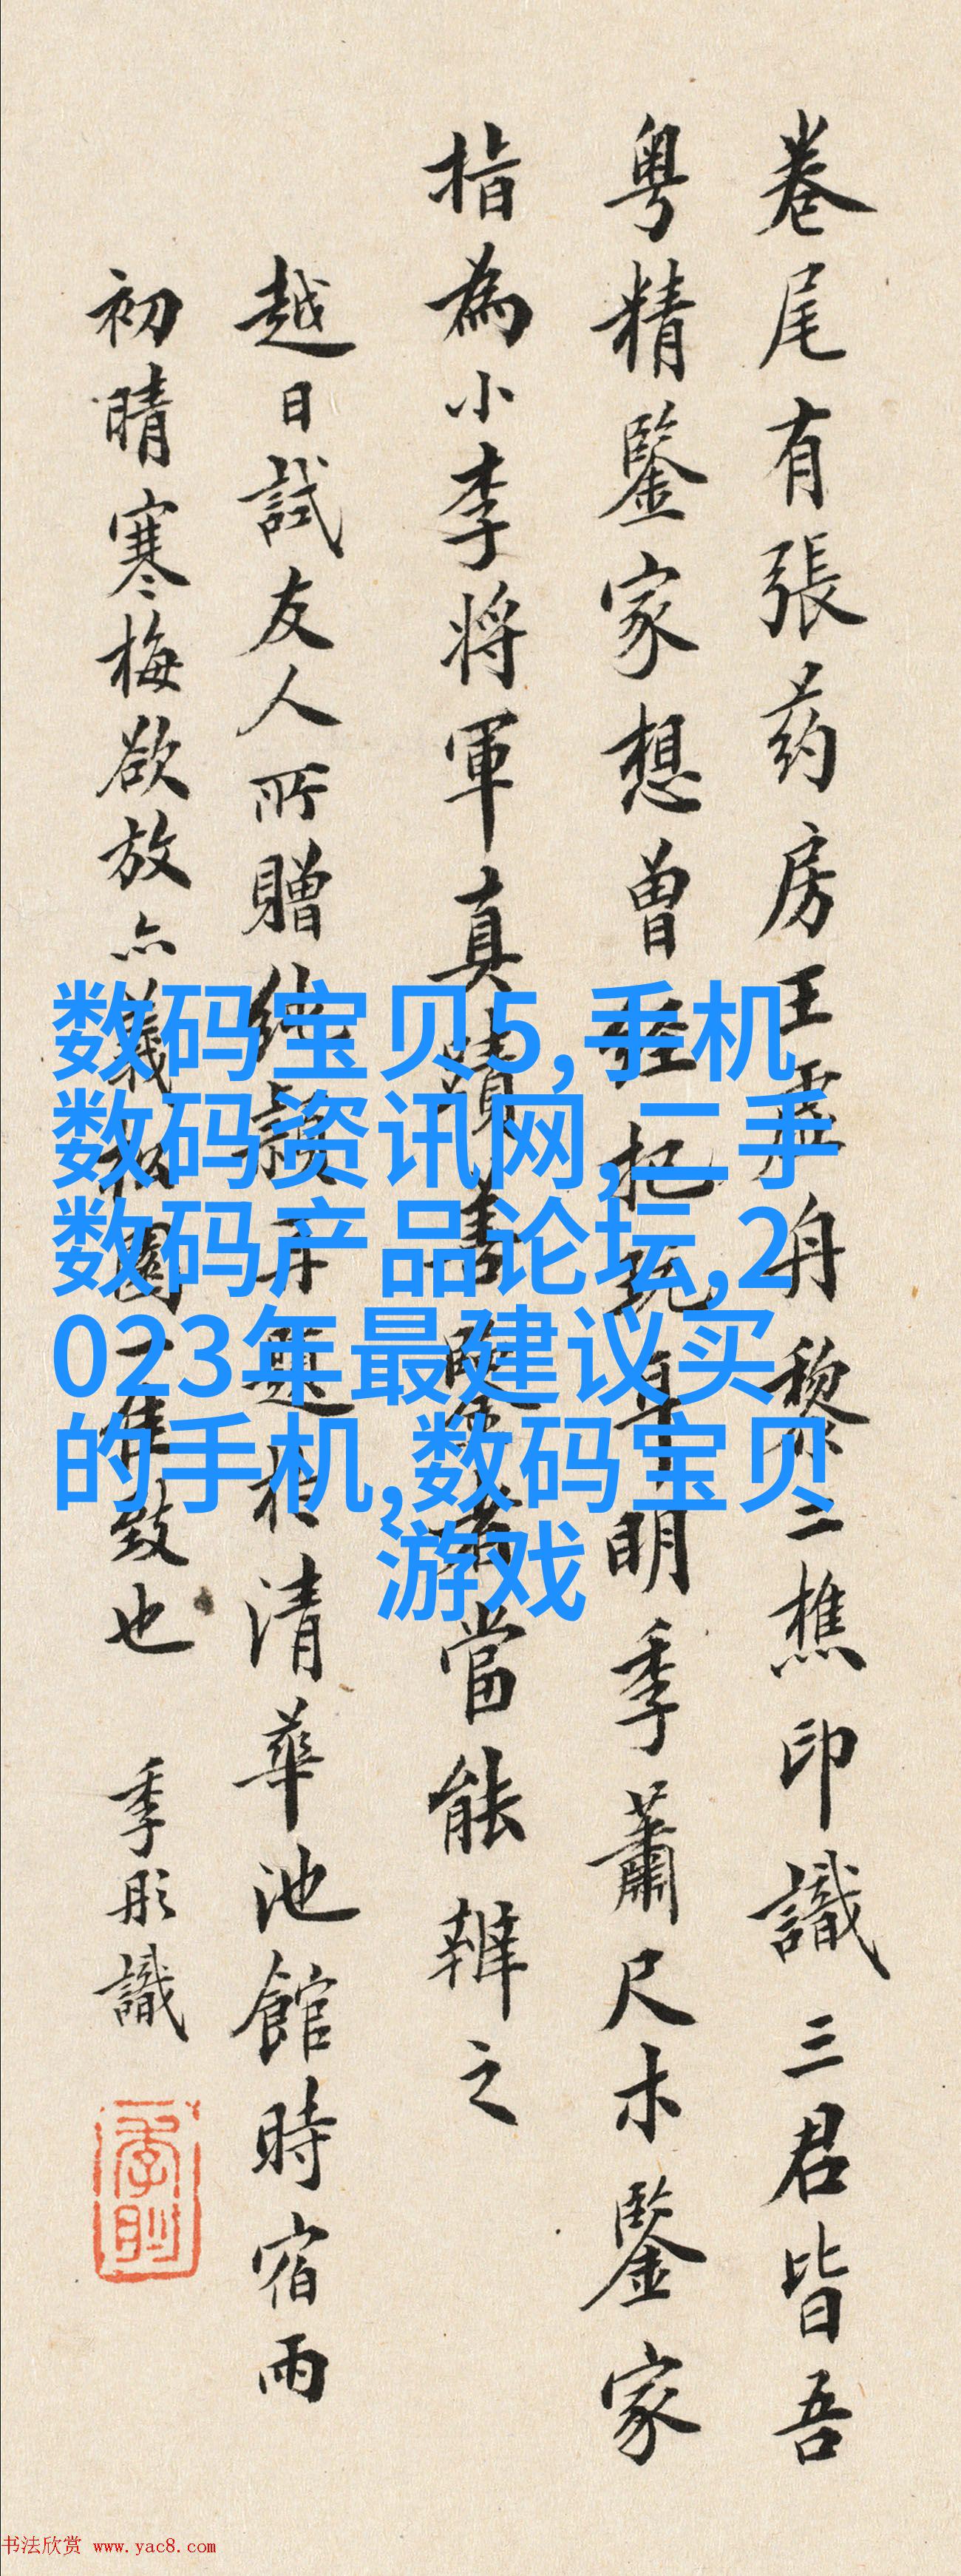 卷尾有張药房王虚舟黎二樵印識三君皆吾
粤精鑒家想曾經把玩明季蕭尺木鑒家
指為小李将軍真蹟善鑒者當能辨之
越日試友人所贈穎并題清華池館時宿雨
初晴寒梅欲放亦園一佳致也 季彤識
数码宝贝5,手机
数码资讯网,二手
数码产品论坛,2
023年最建议买
的手机,数码宝贝
游戏
书法欣赏 www.yac8.com